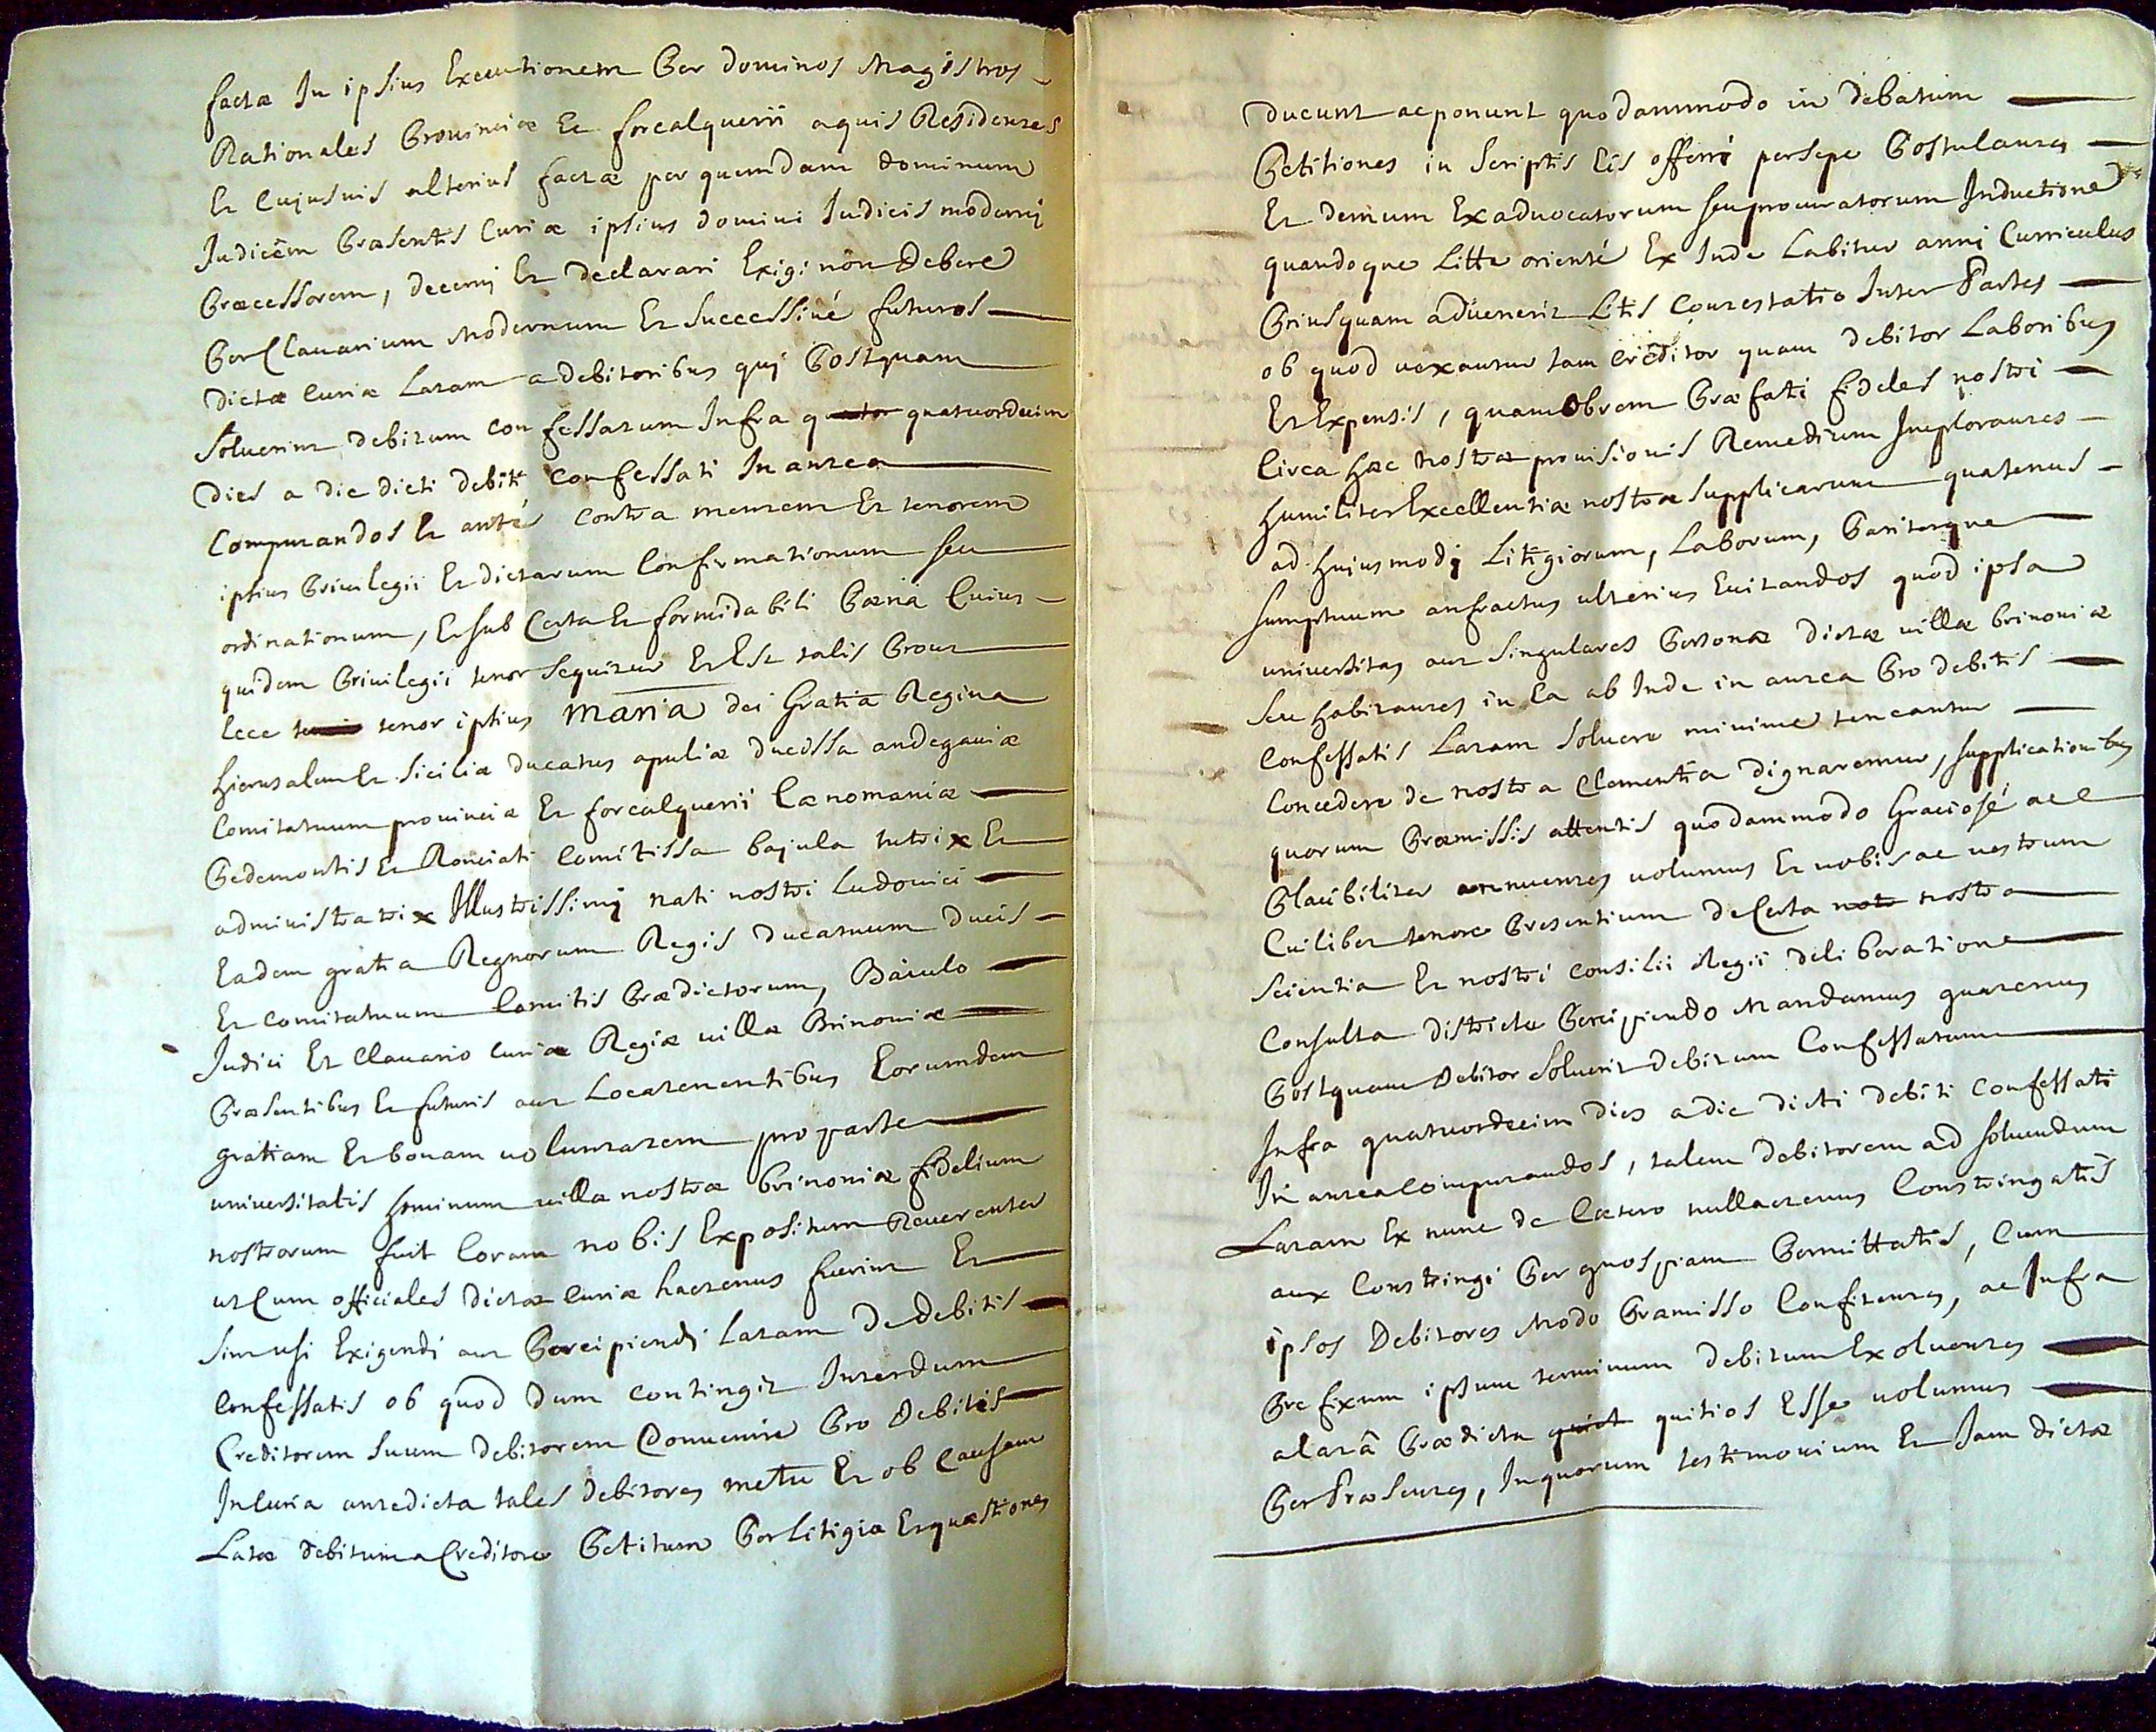 factæ In ipsius Executionem Per dominos Magistros
Rationales Provinciæ Et forcalquerii aquis Residentes
Et Cujusvis alterius factæ per quemdam dominum
Judicem Præsentis Curiæ ipsius domini Judicis moderni
Præcessorem, decerni Et declarari Exigi non Debere
Per Clavarium Modernum Et successivé futuros
Dictæ Curiæ Latam a debitoribus qui Postquam
Solverint debitum confessatum Infra quator quatuordecim
Dies a die dicti debiti confessati In antea
Computandos Et anté contra mentem Et tenorem
ipsius Privilegii Et dictarum Confirmationum seu
ordinationum, Et sub Certa Et formidabili Pæna Cuius
quidem Privilegii tenor sequitur Et Est talis Prout
Ecce tenor ipsius Maria dei Gratia Regina
hierusalem Et Siciliæ ducatus apuliæ ducissa andegaviæ
Comitatuum provinciæ Et forcalquerii Cænomaniæ
Pedemontis Et Ronciati Comitissa bajula tutrix Et
administratrix Illustrissimi nati nostri Ludovici
Eadem gratia Regnorum Regis ducatuum ducis
Et comitatuum Comitis Prædictorum, Baiulo
Judici Et Clavario curiæ Regiæ villæ Brinoniæ
Præsentibus Et futuris aut Locatenentibus Eorumdem
gratiam Et bonam voluntatem pro parte
universitatis hominum villæ nostræ brinoniæ fidelium
nostrorum fuit Coram nobis Expositum Reverenter
ut Cum officiales dictæ curiæ hactenus fuerint Et
sint usi Exigendi aut Percipiendi Latam De debitis
Confessatis ob quod dum contingit Interdum
Creditorem suum debitorem Convenire Pro Debitis
In Curia antedicta tales debitores metu Et ob Causam
Latæ debitum a Creditore Petitum Per Litigia Et quæstiones
Ducunt ac ponunt quodammodo in debatum
Petitiones in Scriptis Eis offerri persepe Postulantes
Et demum Ex advocatorum seu procuratorum Inductione
quandoque Litte orienté Ex Inde Labitur anni Curriculus
Priusquam advenerit Litis Contestatio Inter Partes
ob quod vexantur tam Creditor quam debitor Laboribus
Et Expensis, quamobrem Præfati fideles nostri
Circa hæc nostræ provisionis Remedium Implorantes
humiliter Excellentiæ nostræ supplicarunt quatenus
ad hujusmodi Litigiorum, Laborum, Pariterque
sumptuum anfractus ulterius Evitandos quod ipsa
universitas aut Singulares Personæ dictæ villæ brinoniæ
seu habitantes in Ea ab Inde in antea Pro debitis
Confessatis Latam Solvere minime teneantur
Concedere de nostra Clementia dignaremur, supplicationibus
quorum Præmissis attentis quodammodo Graciosé ac
Placibiliter annuentes volumus Et vobis ac vestrum
Cuilibet tenore Presentium de Certa note nostra
Scientia Et nostri consilii Regii deliberatione
Consulta districte Percipiendo Mandamus quatenus
Postquam Debitor solverit debitum Confessatum
Infra quatuordecim dies a die dicti debiti confessati
In antea computandos, talem debitorem ad solvendum
Latam Ex nunc de Cætero nullactenus Constringatis
aut Constringi Per quospiam Permittatis, Cum
ipsos Debitores Modo Præmisso Confitentes, ac Infra
Prefixum ipsum terminum debitum Exolventes
a latâ Prædicta quict quitios Esse volumus
Per Præsentes, In quorum testimonium Et Jam dictæ